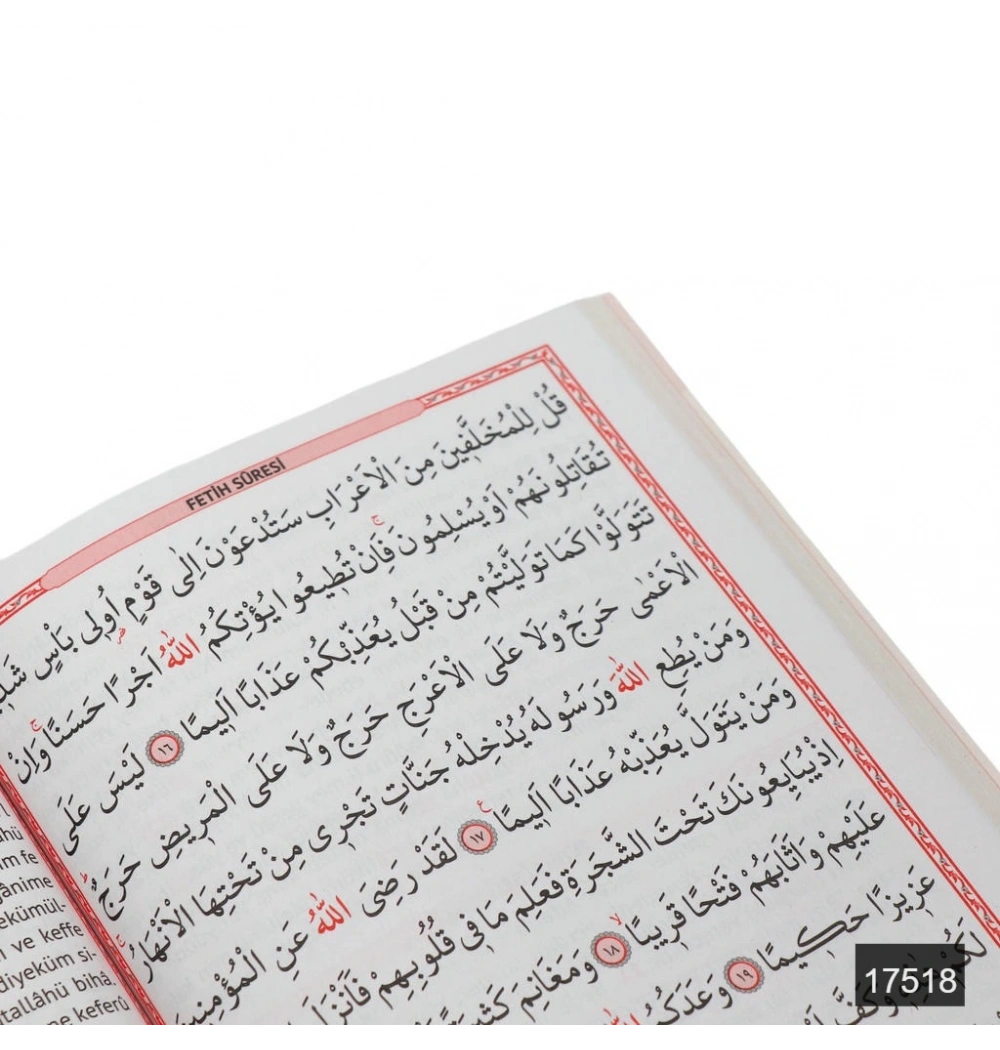 FETİH SÛRESİ
قُلْ لِلْمُخَلَّفٖينَ مِنَ الْاَعْرَابِ سَتُدْعَوْنَ اِلٰى قَوْمٍ اُولٖى بَاْسٍ
تُقَاتِلُونَهُمْ اَوْ يُسْلِمُونَ فَاِنْ تُطٖيعُوا يُؤْتِكُمُ اللّٰهُ اَجْرًا حَسَنًا وَاِنْ
تَتَوَلَّوْا كَمَا تَوَلَّيْتُمْ مِنْ قَبْلُ يُعَذِّبْكُمْ عَذَابًا اَلٖيمًا ١٦ لَيْسَ عَلَى
الْاَعْمٰى حَرَجٌ وَلَا عَلَى الْاَعْرَجِ حَرَجٌ وَلَا عَلَى الْمَرٖيضِ حَرَجٌ
وَمَنْ يُطِعِ اللّٰهَ وَرَسُولَهُ يُدْخِلْهُ جَنَّاتٍ تَجْرٖى مِنْ تَحْتِهَا الْاَنْهَارُ
وَمَنْ يَتَوَلَّ يُعَذِّبْهُ عَذَابًا اَلٖيمًا ١٧ لَقَدْ رَضِىَ اللّٰهُ عَنِ الْمُؤْمِنٖينَ
اِذْ يُبَايِعُونَكَ تَحْتَ الشَّجَرَةِ فَعَلِمَ مَا فٖى قُلُوبِهِمْ فَاَنْزَلَ
عَلَيْهِمْ وَاَثَابَهُمْ فَتْحًا قَرٖيبًا ١٨ وَمَغَانِمَ
عَزٖيزًا حَكٖيمًا ١٩ وَعَدَكُمُ
لَكُمْ وَكَفَّ
im fe
ekümül-
ve keffe
diyeküm si-
tallâhü bihâ.
keferû
17518